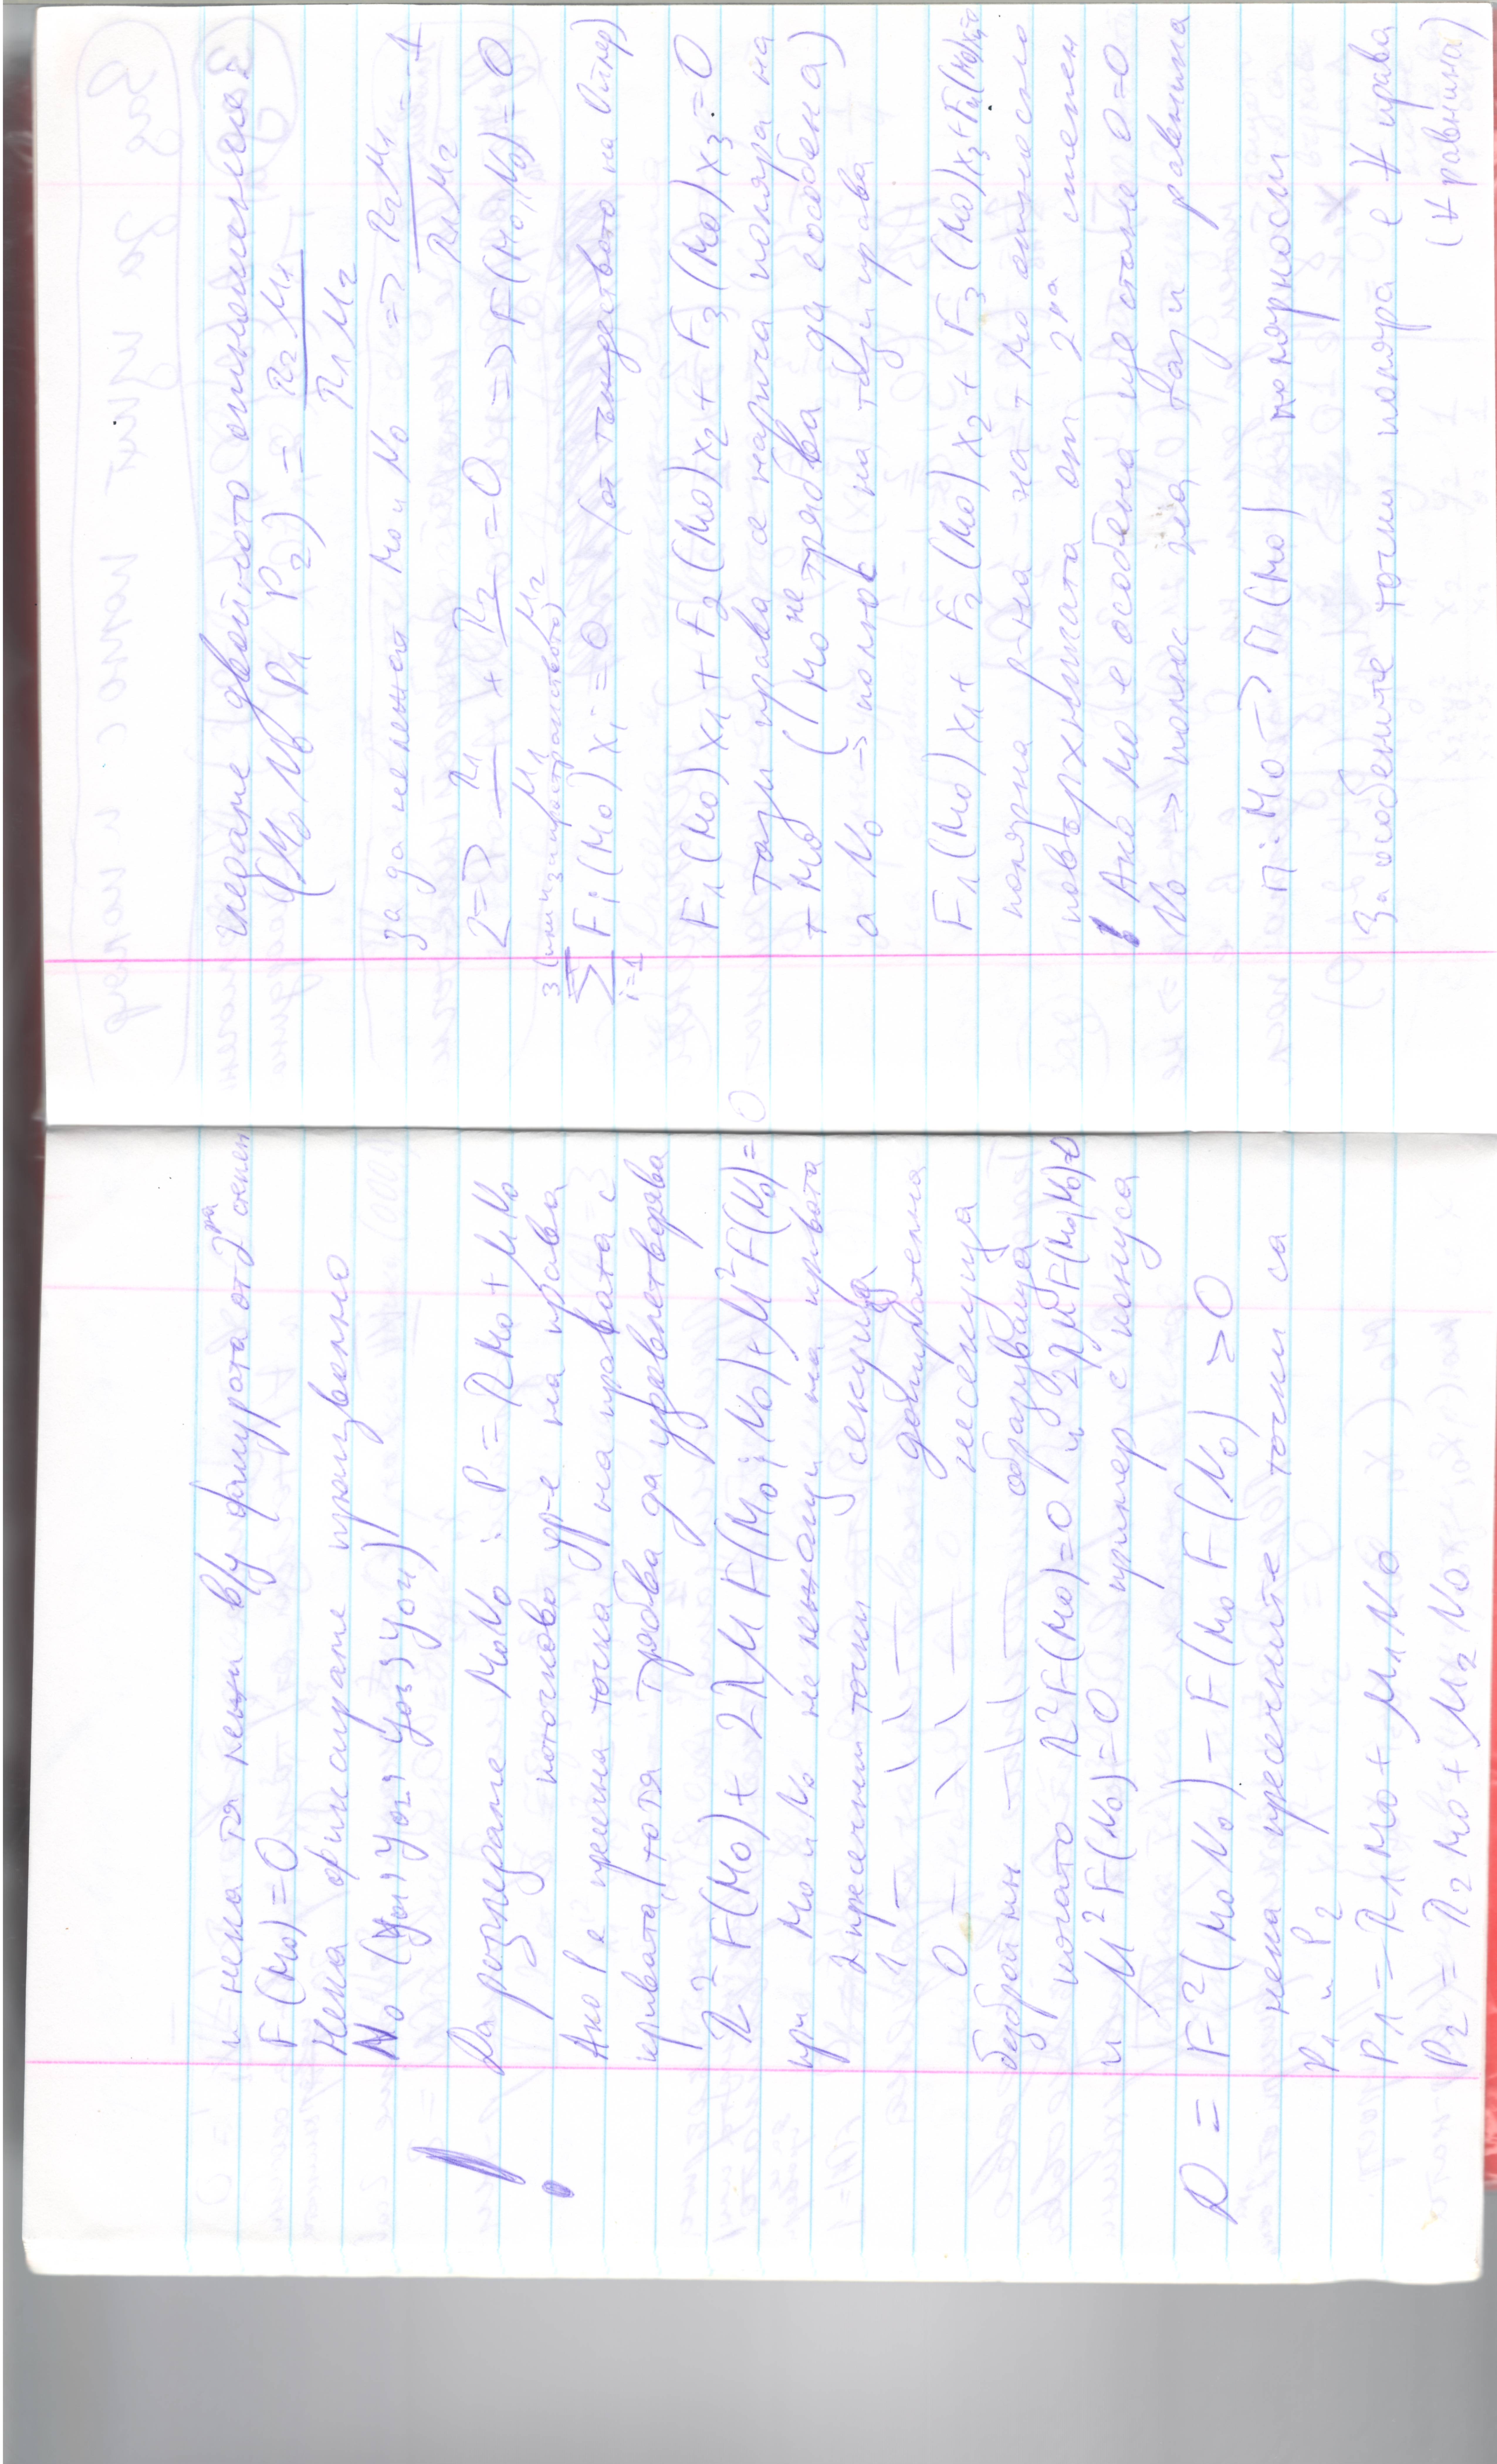 и нека тя лежи в/у фигурата от 2ра степен
F(M0)=0
Нека фиксираме произволно
N0 (y01, y02, y03, y04)
Да разгледаме M0N0 : P = λM0 + μN0
поточково ур-е на права
Ако P е пресечна точка на правата с
кривата, то тя трябва да удовлетворява
λ²F(M0) + 2λμ F(M0; N0) + μ²F(N0) = 0
при M0 и N0 нележащи на кривата
2 пресечни точки секуща
1 — \\ — допирателна
0 — \\ — несекуща
безброй мн — \\ — образуваща
когато λ²F(M0)=0 и 2λμF(M0N0)=0
и μ²F(N0)=0 пример с конуса
D = F²(M0N0) – F(M0 F(N0) > 0
нека пресечните точки са
P1 и P2
P1 = λ1M0 + μ1N0
P2 = λ2M0 + μ2N0
гледаме двойното отношение
(M0 N0 P1 P2) = λ2 μ1 / λ1 μ2
за да не лежат M0 и N0 => λ2μ1 / λ1μ2 = -1
2 => λ1/μ1 + λ2/μ2 = 0 => F(M0, N0) = 0
3 (или 4 за пространството)
∑ Fi(M0) xi = 0 (от тъждеството на Ойлер)
i=1
F1(M0)x1 + F2(M0)x2 + F3(M0)x3 = 0
Тази права се нарича поляра на
т M0 (M0 не трябва да е особена)
а N0 -> полюс на тази права
F1(M0)x1 + F2(M0)x2 + F3(M0)x3 + F4(M0)x4=0
полярна р-на на т M0 относно
повърхнината от 2ра степен
Ако M0 е особена ще стане 0=0
N0 -> полюс на тази равнина
π: M0 -> π(M0) полярност
За особените точки поляра е ∀ права
(∀ равнина)